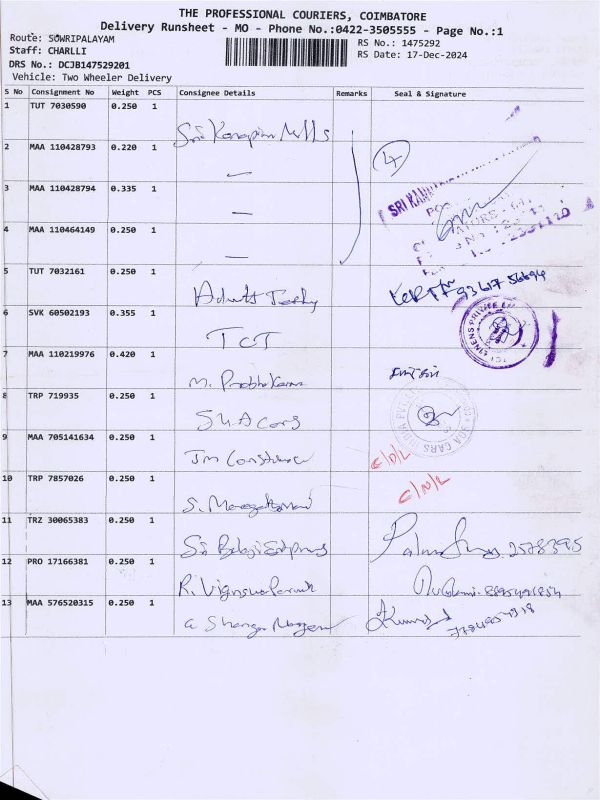 THE PROFESSIONAL COURIERS, COIMBATORE
Delivery Runsheet - MO - Phone No.:0422-3505555 - Page No.:1
Route: SOWRIPALAYAM
RS No.: 1475292
Staff: CHARLLI
RS Date: 17-Dec-2024
DRS No.: DCJB147529201
Vehicle: Two Wheeler Delivery
S No Consignment No Weight PCS Consignee Details Remarks Seal & Signature
1 TUT 7030590 0.250 1 Sri Mills
2 MAA 110428793 0.220 1 — 4
3 MAA 110428794 0.335 1 —
4 MAA 110464149 0.250 1 —
5 TUT 7032161 0.250 1
6 SVK 60502193 0.355 1 TCT
7 MAA 110219976 0.420 1 M. Prabhakaran
8 TRP 719935 0.250 1 SUA Cars
9 MAA 705141634 0.250 1 Jm C/D/L
10 TRP 7857026 0.250 1 S. C/N/L
11 TRZ 30065383 0.250 1 Sri Balaji
12 PRO 17166381 0.250 1 R.
13 MAA 576520315 0.250 1